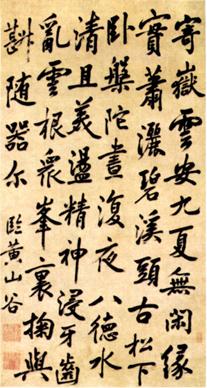 寄嶽雲安九夏無閑緣
實蕭灑碧溪頭古松下
卧槃陀晝復夜八德水
清且美盪精神浸牙齒
亂雲根衆峯裏掬與
斟随器尔 臨黄山谷